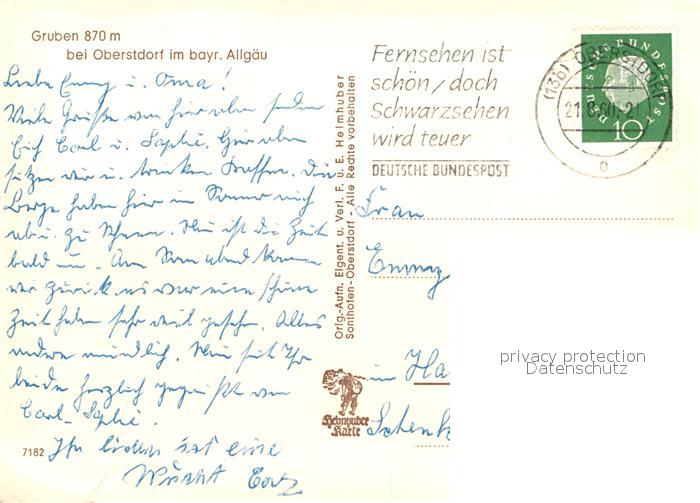 Gruben 870 m
bei Oberstdorf im bayr. Allgäu
Liebe Emmy u. Oma!
Viele Grüße von hier oben senden
Euch Carl u. Sophie. Hier oben
sitzen wir u. trinken Kaffee. Die
Berge haben hier im Sommer
ab u. zu Schnee. Nun ist die Zeit
bald um. Am Sonnabend kommen
wir zurück. es war eine schöne
Zeit haben sehr viel gesehen. Alles
andere mündlich. Nun seit Ihr
beide herzlich gegrüßt von
Carl - Sophie.
7182
Orig.-Aufn. Eigent. u. Verl. F. u. E. Heimhuber
Sonthofen-Oberstdorf - Alle Rechte vorbehalten
Heimhuber
Karte
Fernsehen ist
schön, doch
Schwarzsehen
wird teuer
DEUTSCHE BUNDESPOST
(13b) OBERSTDORF
21.8.60.-21
DEUTSCHE BUNDESPOST
10
Frau
Emmy
in Ha
Schenk
privacy protection
Datenschutz